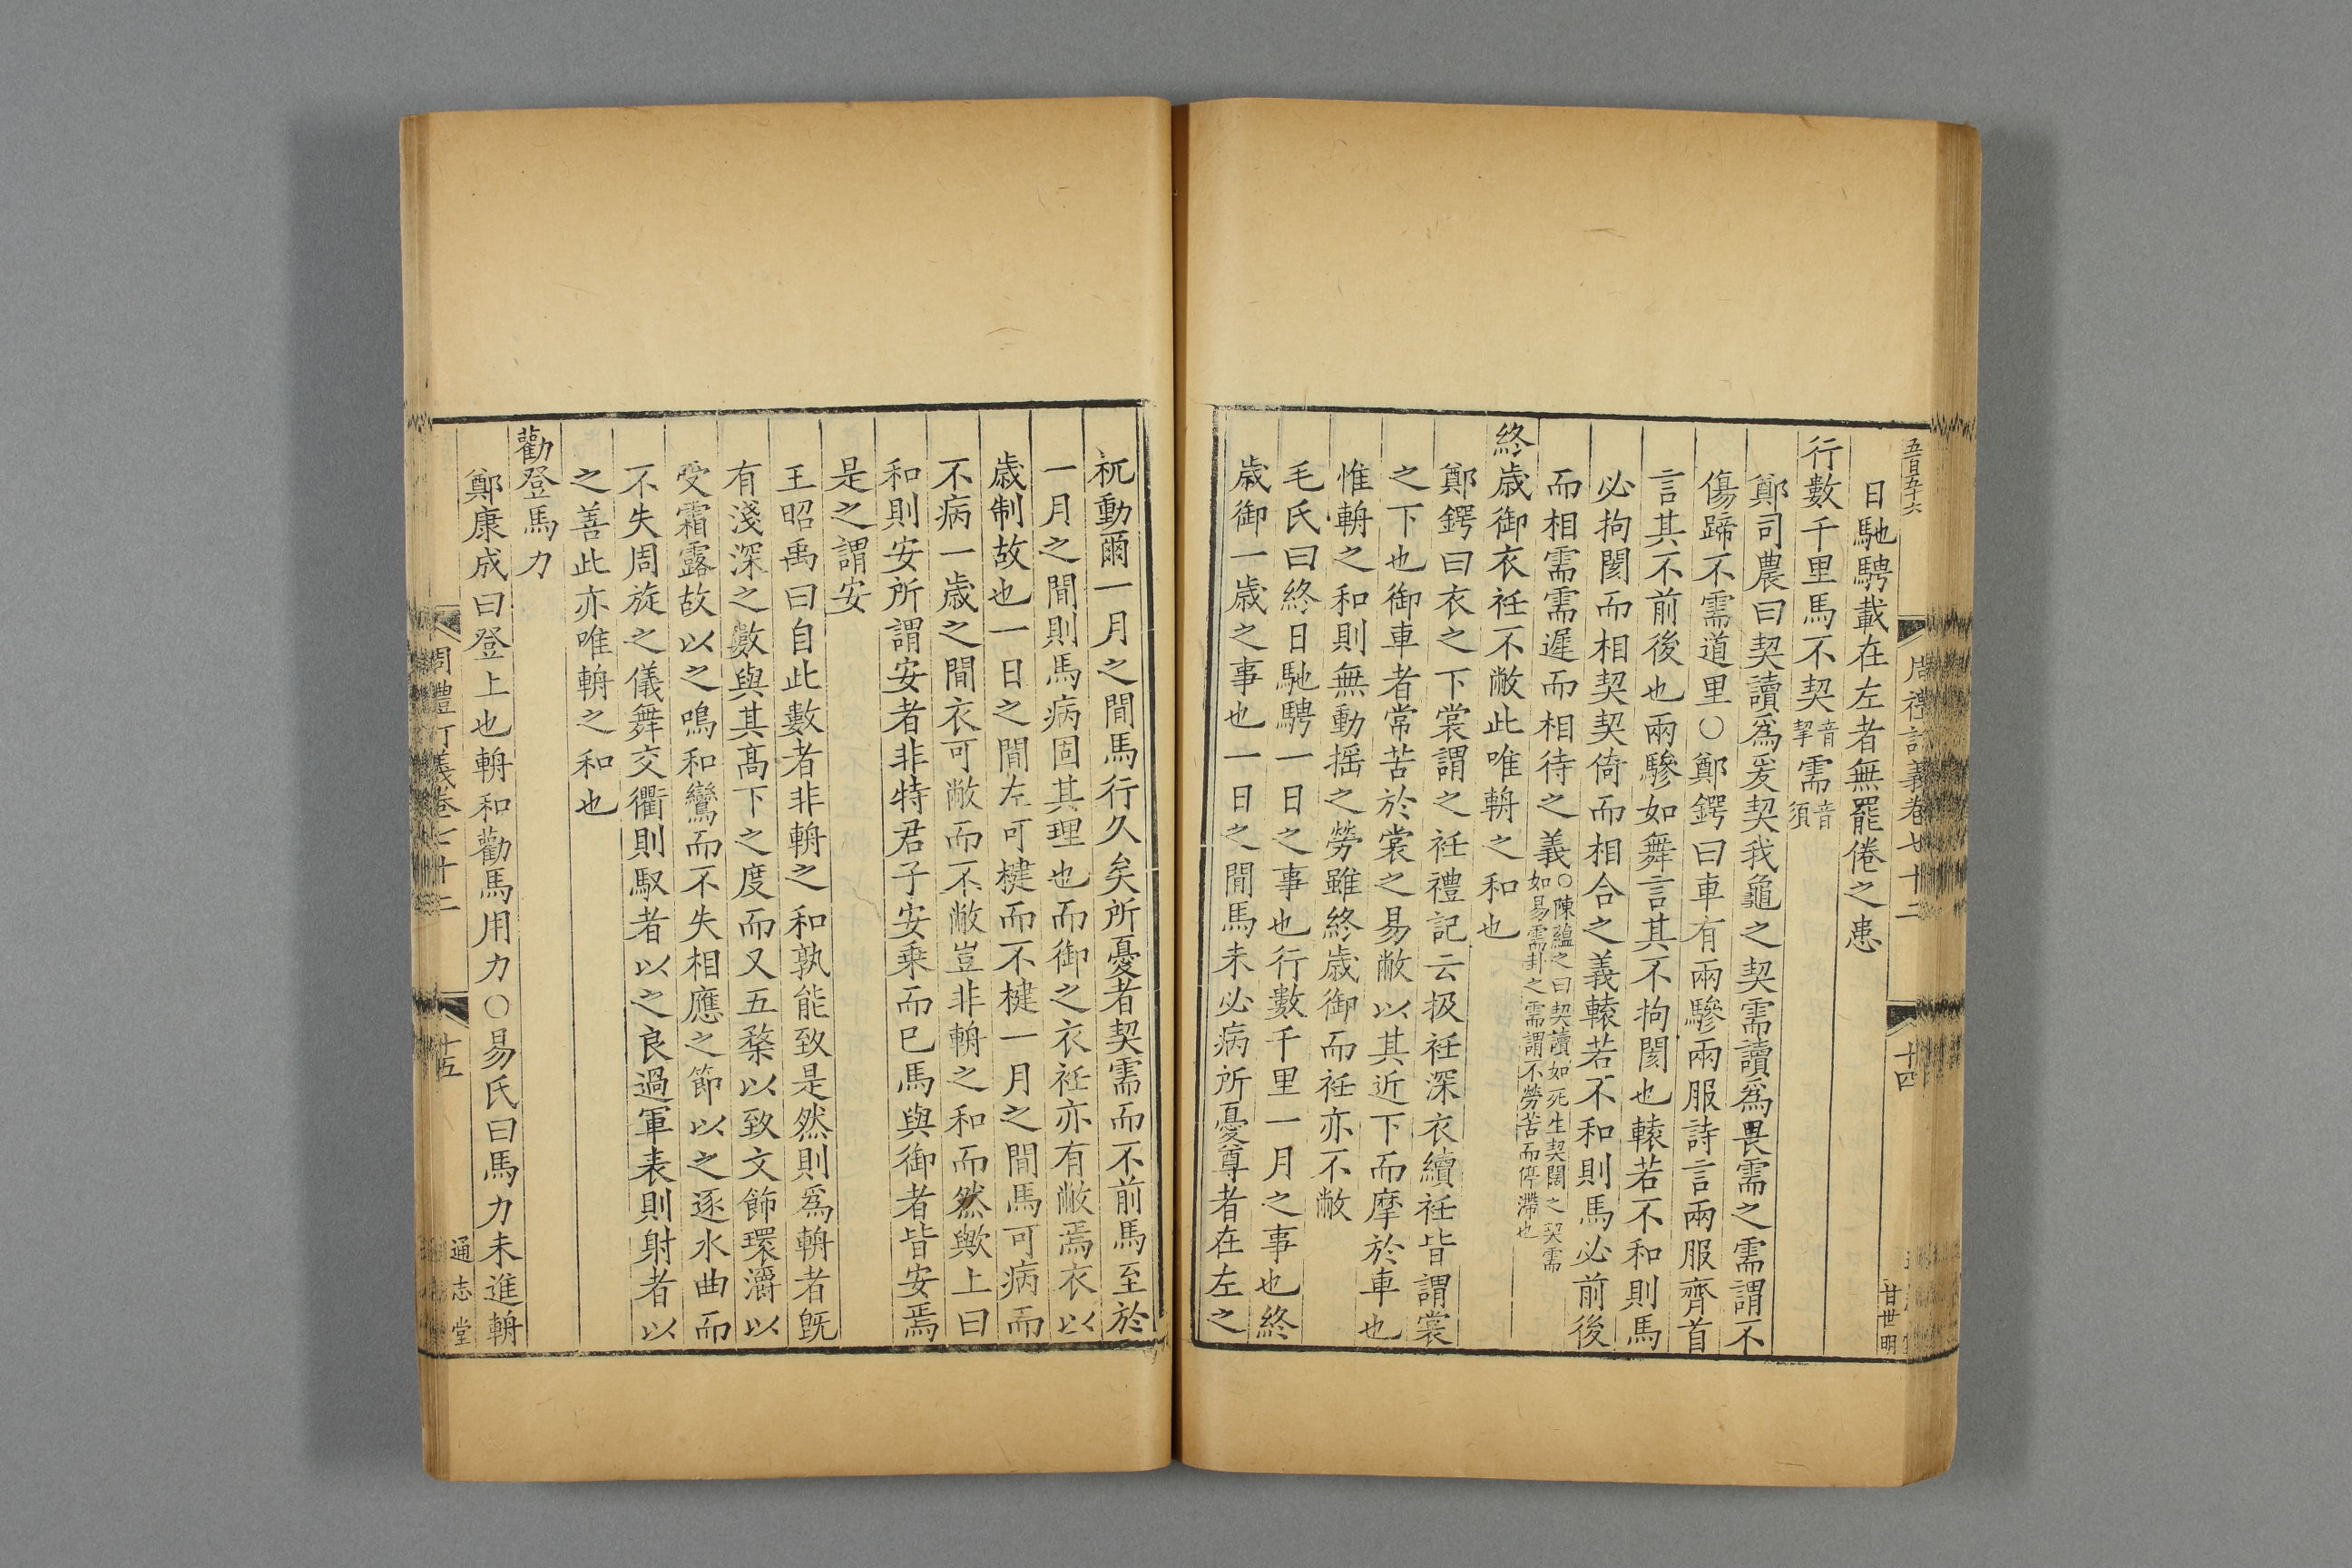 五百五十六
周禮訂義卷七十二
十四
甘世明
日馳騁載在左者無罷倦之患
行數千里馬不契音挈需音須
鄭司農曰契讀爲爰契我龜之契需讀爲畏需之需謂不
傷蹄不需道里○鄭鍔曰車有兩驂兩服詩言兩服齊首
言其不前後也兩驂如舞言其不拘閡也轅若不和則馬
必拘閡而相契契倚而相合之義轅若不和則馬必前後
而相需需遲而相待之義○陳蘊之曰契讀如死生契闊之契需如易需卦之需謂不勞苦而停滯也
終歳御衣衽不敝此唯輈之和也
鄭鍔曰衣之下裳謂之衽禮記云扱衽深衣續衽皆謂裳
之下也御車者常苦於裳之易敝以其近下而摩於車也
惟輈之和則無動揺之勞雖終歳御而衽亦不敝
毛氏曰終日馳騁一日之事也行數千里一月之事也終
歳御一歳之事也一日之間馬未必病所憂尊者在左之
祇動爾一月之間馬行久矣所憂者契需而不前馬至於
一月之間則馬病固其理也而御之衣衽亦有敝焉衣以
歳制故也一日之間左可楗而不楗一月之間馬可病而
不病一歳之間衣可敝而不敝豈非輈之和而然歟上曰
和則安所謂安者非特君子安乗而巳馬與御者皆安焉
是之謂安
王昭禹曰自此數者非輈之和孰能致是然則爲輈者旣
有淺深之數與其髙下之度而又五楘以致文飾環灂以
受霜露故以之鳴和鸞而不失相應之節以之逐水曲而
不失周旋之儀舞交衢則馭者以之良過軍表則射者以
之善此亦唯輈之和也
勸登馬力
鄭康成曰登上也輈和勸馬用力○易氏曰馬力未進輈
周禮訂義卷七十二
十五
通志堂